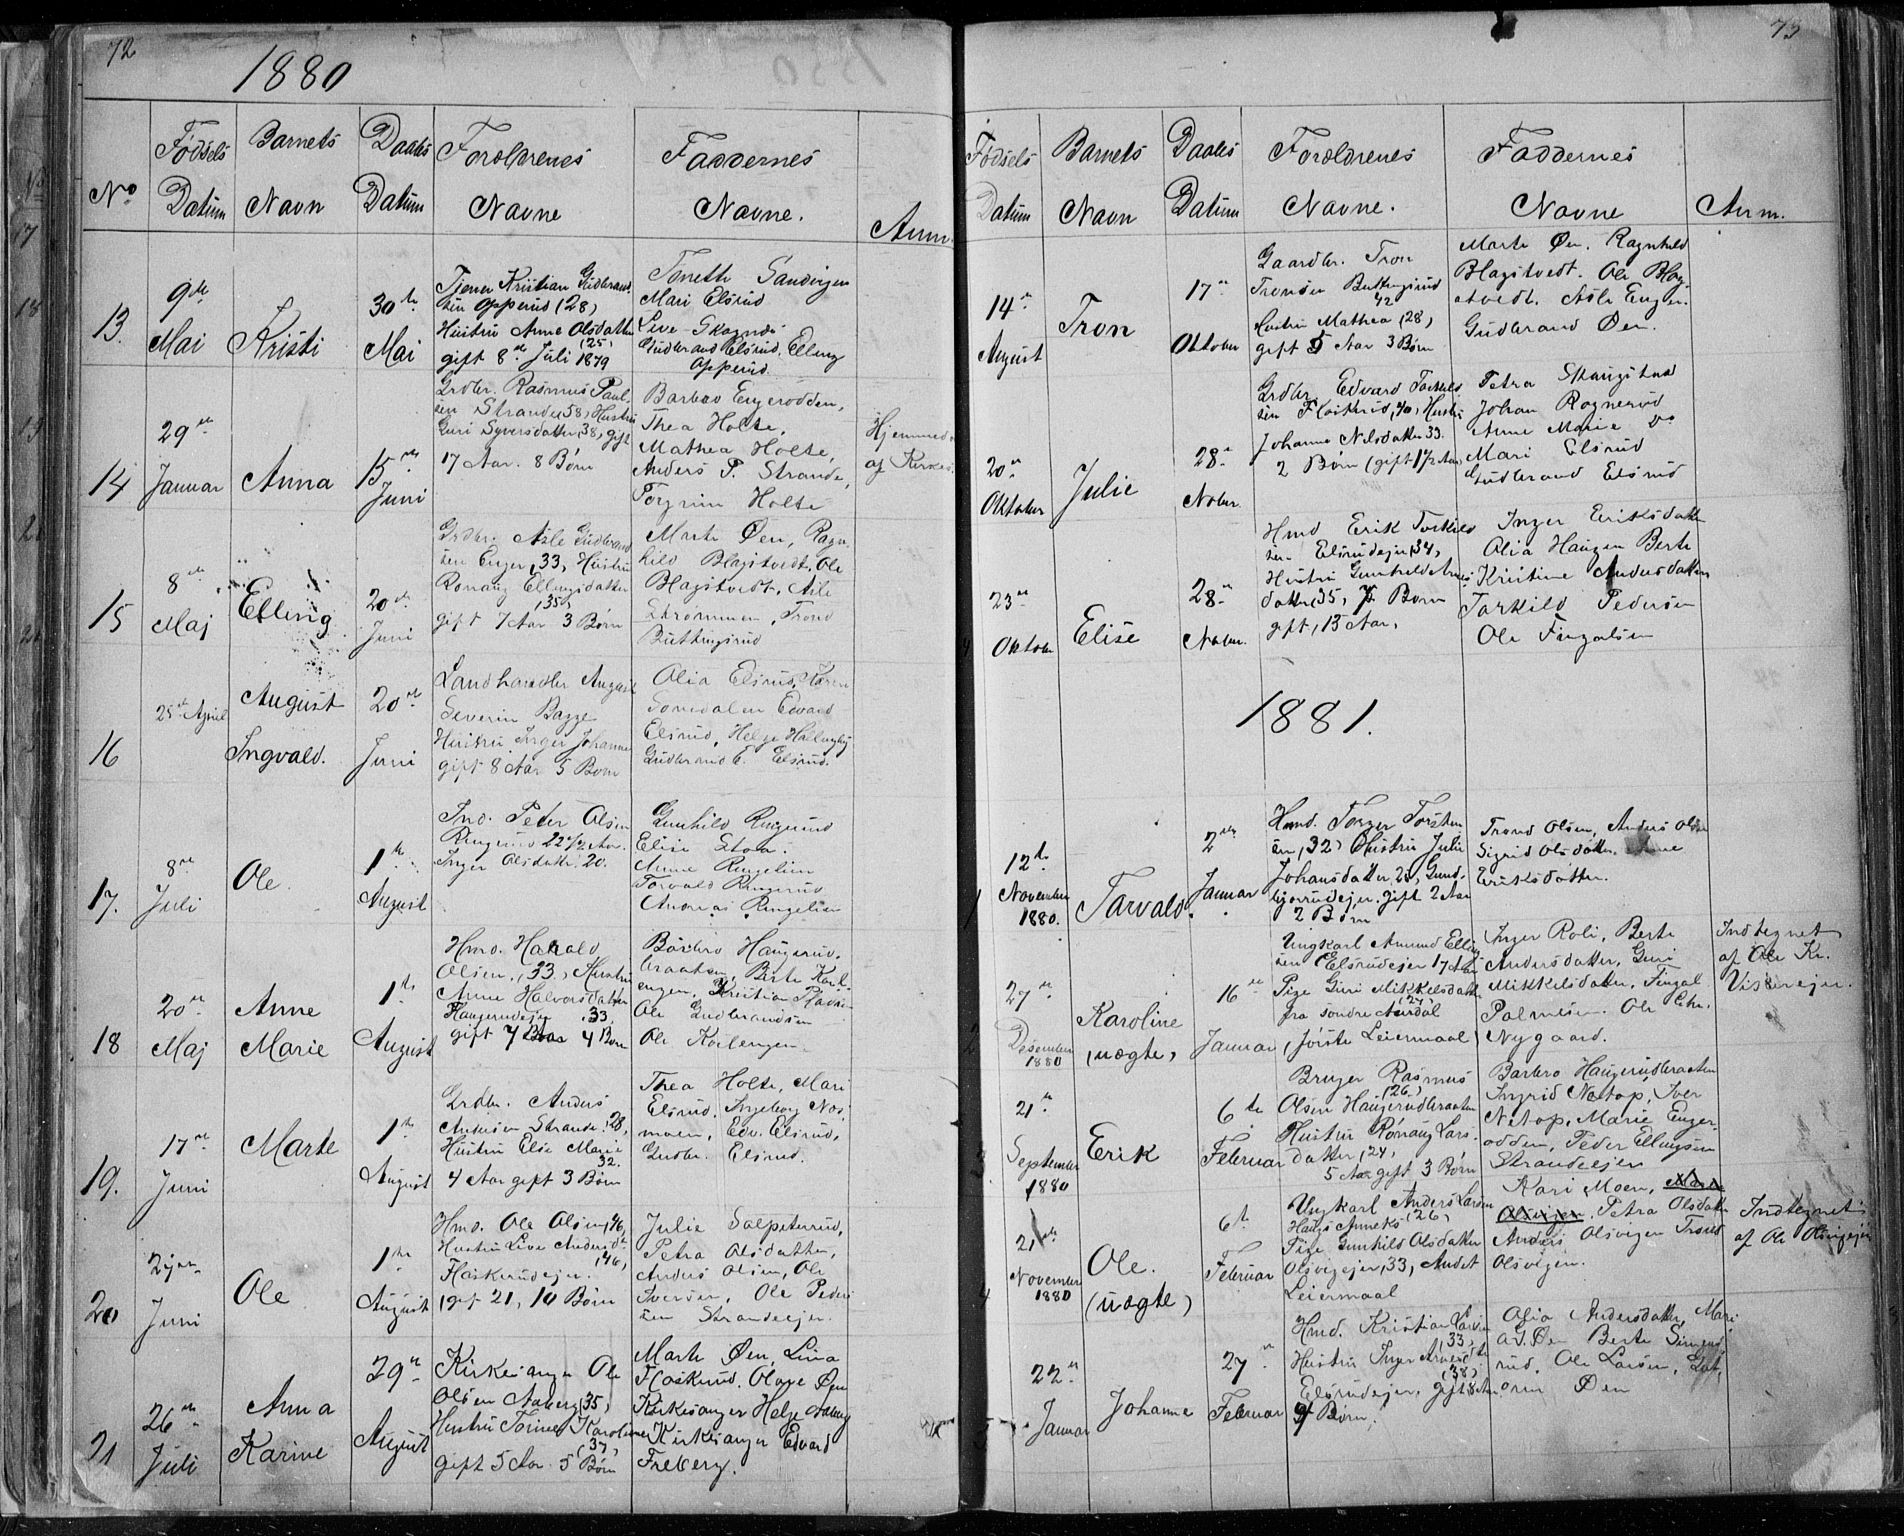 72
1880
No
Fødsels
Datum
Barnets
Navn
Daabs
Datum
Forældrenes
Navne
Faddernes
Navne.
Anm.
13.
9de
Mai
Kristi
30te
Mai
Tjener Kristian Gudbrand
sen Opperud (28)
Hustru Anne Olsdatter
(25)
gift 8de Juli 1879
Mari Elsrud
Live Skagnæs
Gudbrand Elsrud, Elling
Opperud.
14
29de
Januar
Anna
15de
Juni
Grdbr. Rasmus Paul-
sen Strande, 58, Hustru
Guri Syversdatter, 38, gift
17 Aar. 8 Børn
Barbro Engerodden,
Thea Holte,
Mathea Holte,
Anders P. Strande,
Torgrim Holte
Hjemmed.
af Kirkes.
15
8de
Maj
Elling
20de
Juni
Grdbr. Asle Gudbrand
sen Enger, 33, Hustru
Rønnaug Ellingsdatter
(35)
gift 7 Aar 3 Børn
Marte Øen, Ragn-
hild Blagstvedt, Ole
Blagstvedt, Asle
Strømmen, Trond
Buttingsrud
16
25de April
August
Ingvald.
20de
Juni
Landhandler August
Severin Bagge
Hustru Inger Johanne
gift 8 Aar 5 Børn
Olia Elsrud, Karen
Edvard
Elsrud, Helge Hallingby
Gudbrand E. Elsrud.
17.
8de
Juli
Ole
1te
August
Ind. Peder Olsen
Ringerud 22 1/2 Aar.
Inger Olsdatter 20.
Gunhild Ringerud
Elise Stoa.
Anne Ringelien
Torvald Ringerud
Andreas Ringelien
18
20de
Maj
Anne
Marie
1te
August
Hmd. Harald
Olsen, 33, Hustru
Anne Halvorsdatter
Haugerudejer 33.
gift 7 Aar 4 Børn
Barbro Haugerud-
braaten, Berte Kol-
engen, Kristian
Ole Gudbrandsen
Ole Kolengen
19.
17de
Juni
Marte
1te
August
Grdbr. Anders
Andersen Strande, 28,
Hustru Else Marie
32.
4 Aar gift 3 Børn
Thea Holte, Mari
Elsrud, Ingeborg Nos-
moen, Edv. Elsrud,
Gudbr. Elsrud.
20
2den
Juni
Ole
1te
August
Hmd. Ole Olsen, 46,
Hustru Live Andersdt.
(46)
Flaskerudejer.
gift 21, 10 Børn
Julie Salpeterud,
Petra Olsdatter,
Anders Olsen, Ole
Iversen, Ole Peder
sen Strandeejer.
21
26de
Juli
Anna
Karine
29de
August
Kirkesanger Ole
Olsen Aaberg (35)
Hustru Karoline
(37)
gift 5 Aar. 5 Børn
Marte Øen, Lina
Flaskerud, Olave Øen
Kirkesanger Helge Aaberg
Kirkesanger Edvard
Freberg.
73
Fødsels
Datum
Barnets
Navn
Daabs
Datum
Forældrenes
Navne.
Faddernes
Navne
Anm.
14de
August
Tron
17de
Oktober
Gaardbr. Tron
Tronsen Buttingsrud
42
Hustru Mathea (28)
gift 5 Aar 3 Børn
Marte Øen, Ragnhild
Blagstvedt. Ole Blag-
stvedt, Asle Enger.
Gudbrand Øen.
20de
Oktober
Julie
28de
Nobr.
Grdbr. Edvard Torkild
sen Flaskrud, 40, Hustru
Johanne Nilsdatter 33.
2 Børn (gift 1 1/2 Aar)
Petra Skaugstad
Johan Rognerud
Anne Marie Do
Mari Elsrud
Gudbrand Elsrud
23de
Oktober
Elise
28de
Nobr.
Hmd Erik Torkild
sen Elsrudejer, 34,
Hustru Gunhild Arnes-
datter, 35, 7 Børn
gift, 13 Aar.
Inger Eriksdatter
Olia Haugen Berte
Kristine Andersdatter
Torkild Pedersen
Ole Fingalsen
1881.
1
12te
November
1880.
Tarvald.
2den
Januar
Hmd. Torger Torsten
sen, 32, Hustru Julie
Johansdatter, 25, Gund-
bjørrudejer. gift 2 Aar
2 Børn
Trond Olsen, Anders Olsen
Sigrid Olsdatter.
Eriksdatter.
2
27de
Desember
1880
Karoline
(uægte)
16de
Januar
Ungkarl Amund Elling
sen Elsrudejer 17 Aar
Pige Guri Mikkelsdatter
(27)
fra søndre Aurdal
(første Leiermaal)
Inger Roli, Berte
Andersdatter, Guri
Mikkelsdatter, Fingal
Palmesen. Ole Chr.
Nygaard.
Indtegnet
af Ole Kr.
3
21de
September
1880
Erik
6te
Februar
Bruger Rasmus
(26)
Olsen Haugerudbraaten
Hustru Rønnaug Lars-
datter, 24,
5 Aar gift 3 Børn
Barbro Haugerudbraaten
Ingrid Natop, Iver
Netop, Marie Enger-
odden, Peder Ellingsen
Strandeejer
4
21de
November
1880
Ole.
(uægte)
6te
Februar
Ungkarl Anders Larsen
Haugs Anneks (26)
Pige Gunhild Olsdatter
Olsvigejer, 33, Andet
Leiermaal
Kari Moen,
Petra Olsdatter
Anders Olsvigen Trond
Olsvigen.
Indtegnet
af Ole Olsvigejer
5
22de
Januar
Johanne
27de
Februar
Hmd. Kristian
33,
Hustru Inger
(38)
Elsrudejer, gift 8 Aar
4 Børn.
Olia Andersdatter, Mari
A. Øen Berte
rud, Ole Larsen,
Øen